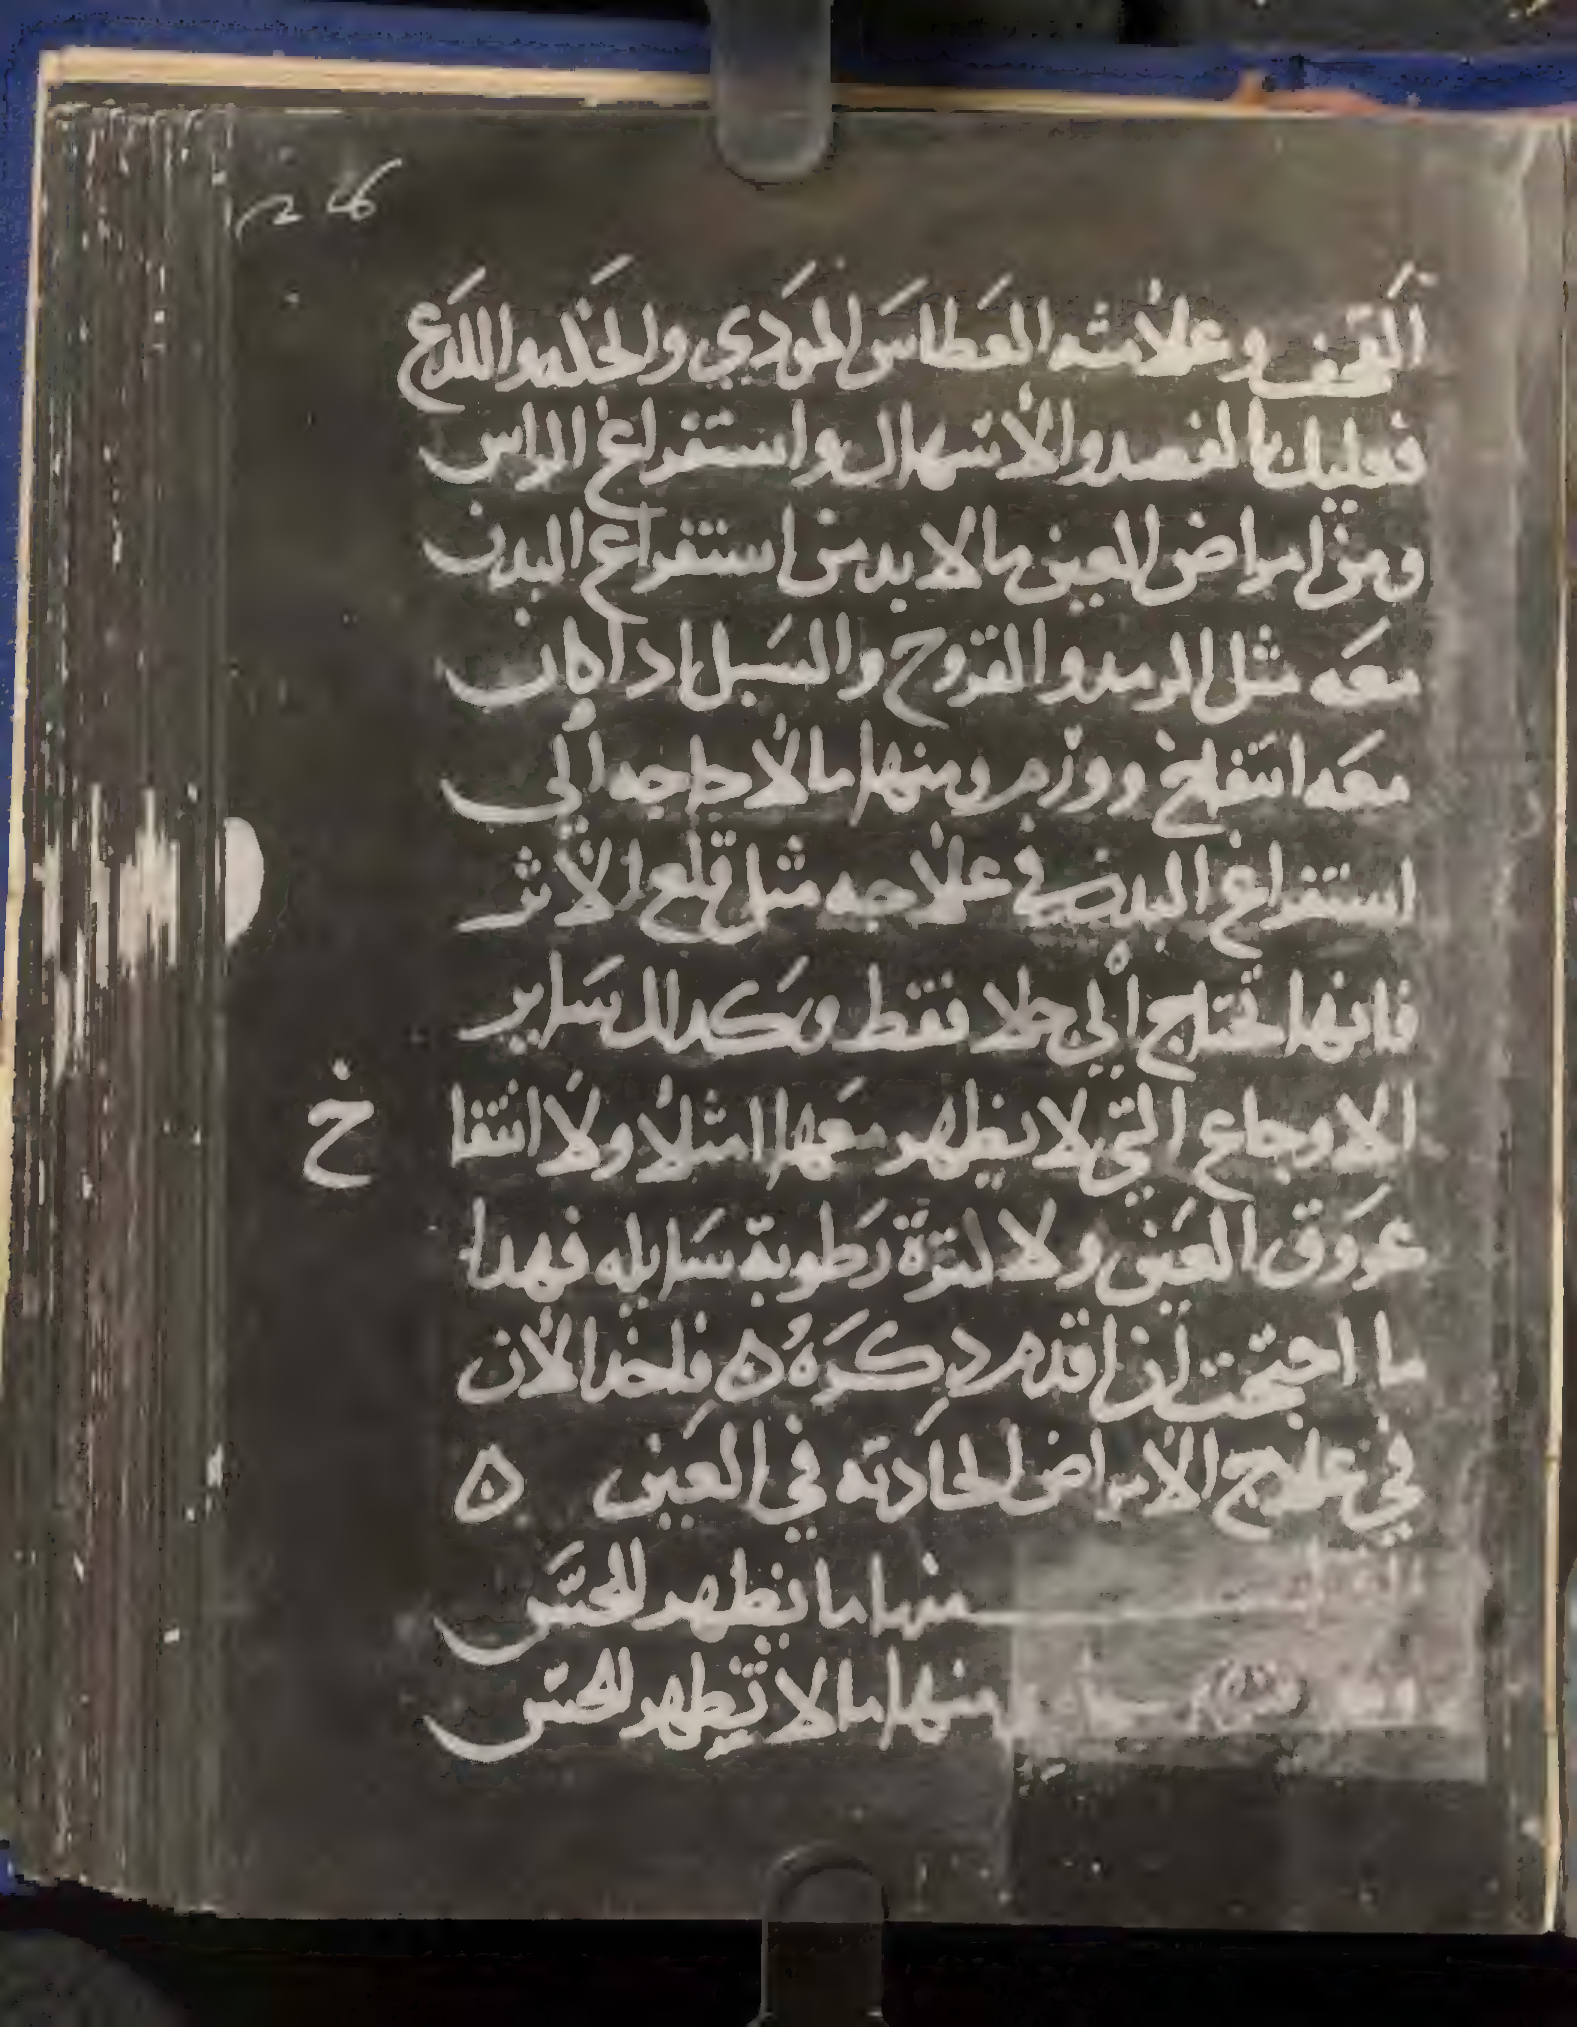 القحف وعلامته العطاس المودي والحكه واللدع
فعليك بالفصد والاسهال واستفراغ الراس
ومن امراض العين ما لا بد من استفراغ البدن
معه مثل الرمد والقروح والسبل ادا كان
معه انتفاخ وورم ومنها ما لا حاجه الي
استفراغ البدن في علاجه مثل قلع الاثر
فانها تحتاج الي جلا فقط وكدلك ساير
الاوجاع التي لا يظهر معها امتلا ولا انتفا
خ
عروق العين ولا رطوبة سايله فهدا
ما احتجت ان اقدم دكره ه فلنبدا الان
في علاج الامراض الحادته في العين ه
منها ما يظهر للحس
منها ما لا يظهر للحس